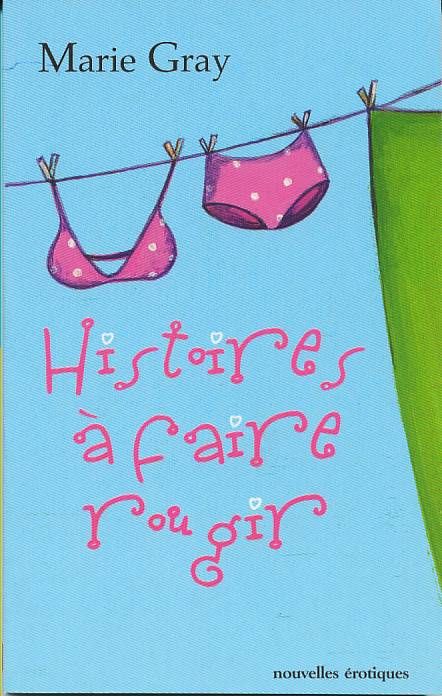 Marie Gray
Histoires
à faire
rougir
nouvelles érotiques